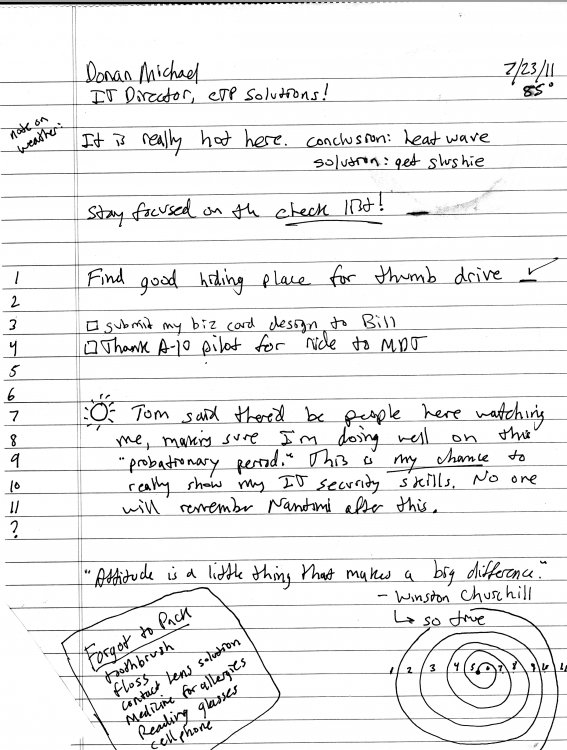 Donan Michael
7/23/11
IT Director, CTP Solutions!
85°
note on weather:
It is really hot here. conclusion: heat wave
solution: get slushie
Stay focused on the check list!
1 Find good hiding place for thumb drive
2
3 submit my biz card design to Bill
4 Thank A-10 pilot for ride to MDT
5
6
7 Tom said there'd be people here watching
8 me, making sure I'm doing well on this
9 "probationary period." This is my chance to
10 really show my IT security skills. No one
11 will remember Nantomi after this.
?
"Attitude is a little thing that makes a big difference."
- Winston Churchill
so true
Forgot to Pack
toothbrush
floss
contact lens solution
Medicine for allergies
Reading glasses
cell phone
1 2 3 4 5 6 7 8 9 10 11